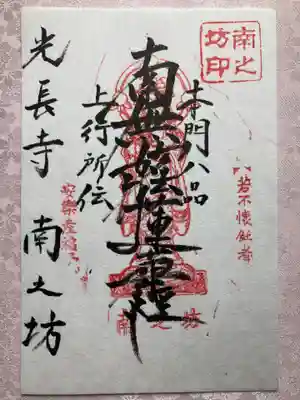 南之坊印
本門八品
南無妙法蓮華経
上行所伝
南之坊
光長寺 南之坊